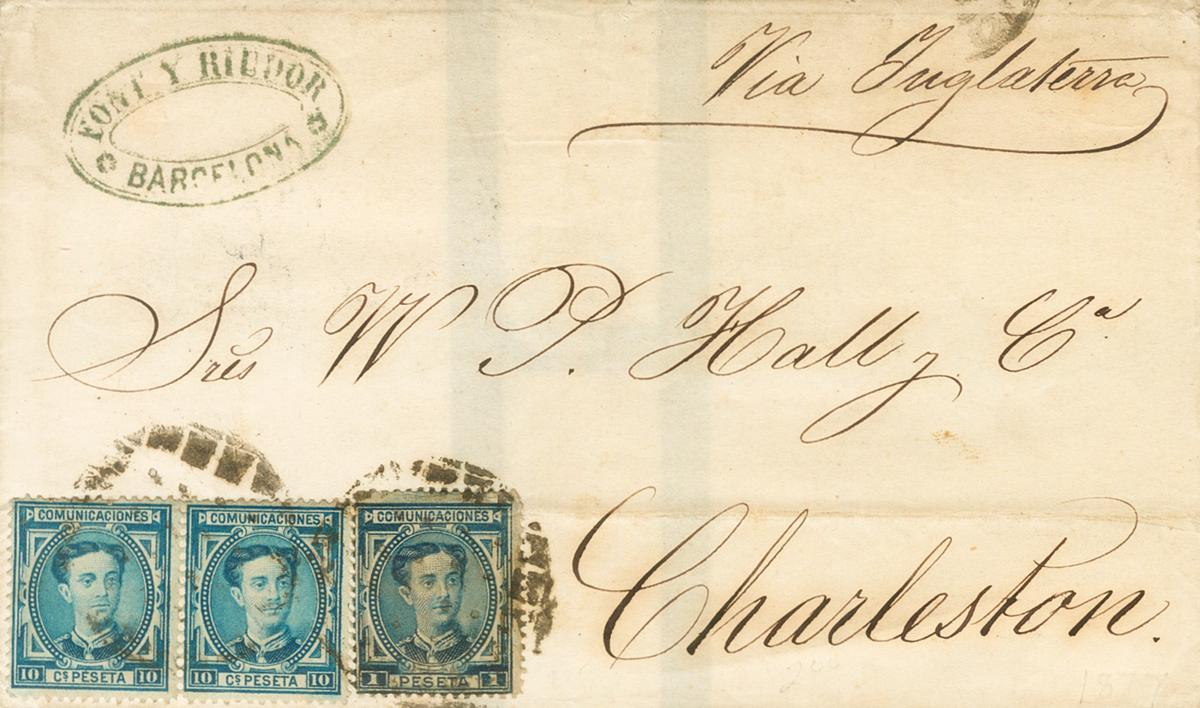 FONT Y RIUDOR
BARCELONA
Via Inglaterra
Sres W P. Hall y Cª
Charleston.
COMUNICACIONES COMUNICACIONES COMUNICACIONES
10 Cs PESETA 10 10 Cs PESETA 10 1 PESETA 1